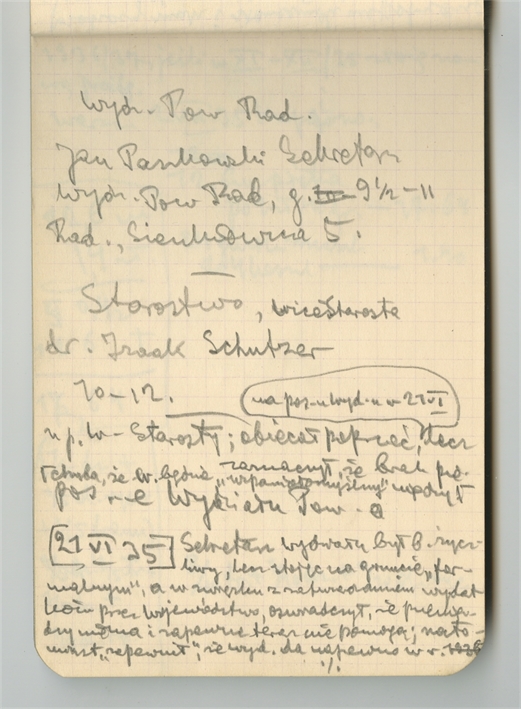 Wydz. Pow Rad.
Jan Paszkowski Sekretarz
Wydz. Pow Rad, g. 9½–11
Rad., Sienkiewicza 5.
Starostwo, wiceStarosta
dr. Izaak Schutzer
10–12.
na pos-u wyd-u w 21 VI
u p. W-Starosty; obiecał poprzeć, lecz
zaznaczył, że brak pie
Wydziału Pow. a
[21 VI 35] Sekretarz wydziału był b. życz-
liwy, lecz stojąc na gruncie „for-
malnym", a w związku z zatwierdzeniem wydat
ków przez Województwo, oświadczył, że
i zapewne teraz nie pomogą; nato-
miast „zapewnił", że wyd. da napewno w r. 1936